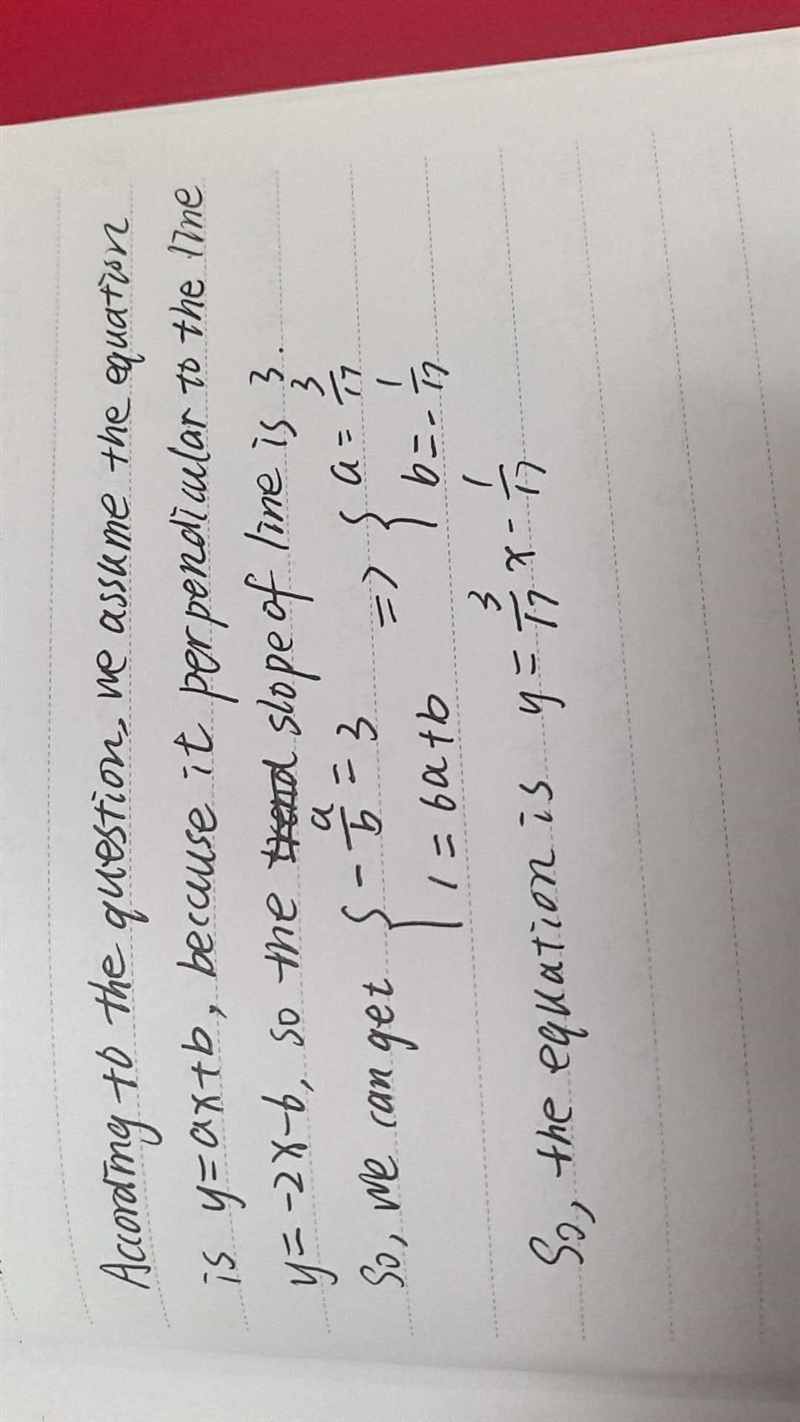 According to the question, we assume the equation
is y=ax+b, because it perpendicular to the line
y=-2x-6, so the slope of line is 3.
So, we can get { -a/b = 3 => { a = 3/17
1 = 6a+b b = -1/17
So, the equation is y = 3/17 x - 1/17